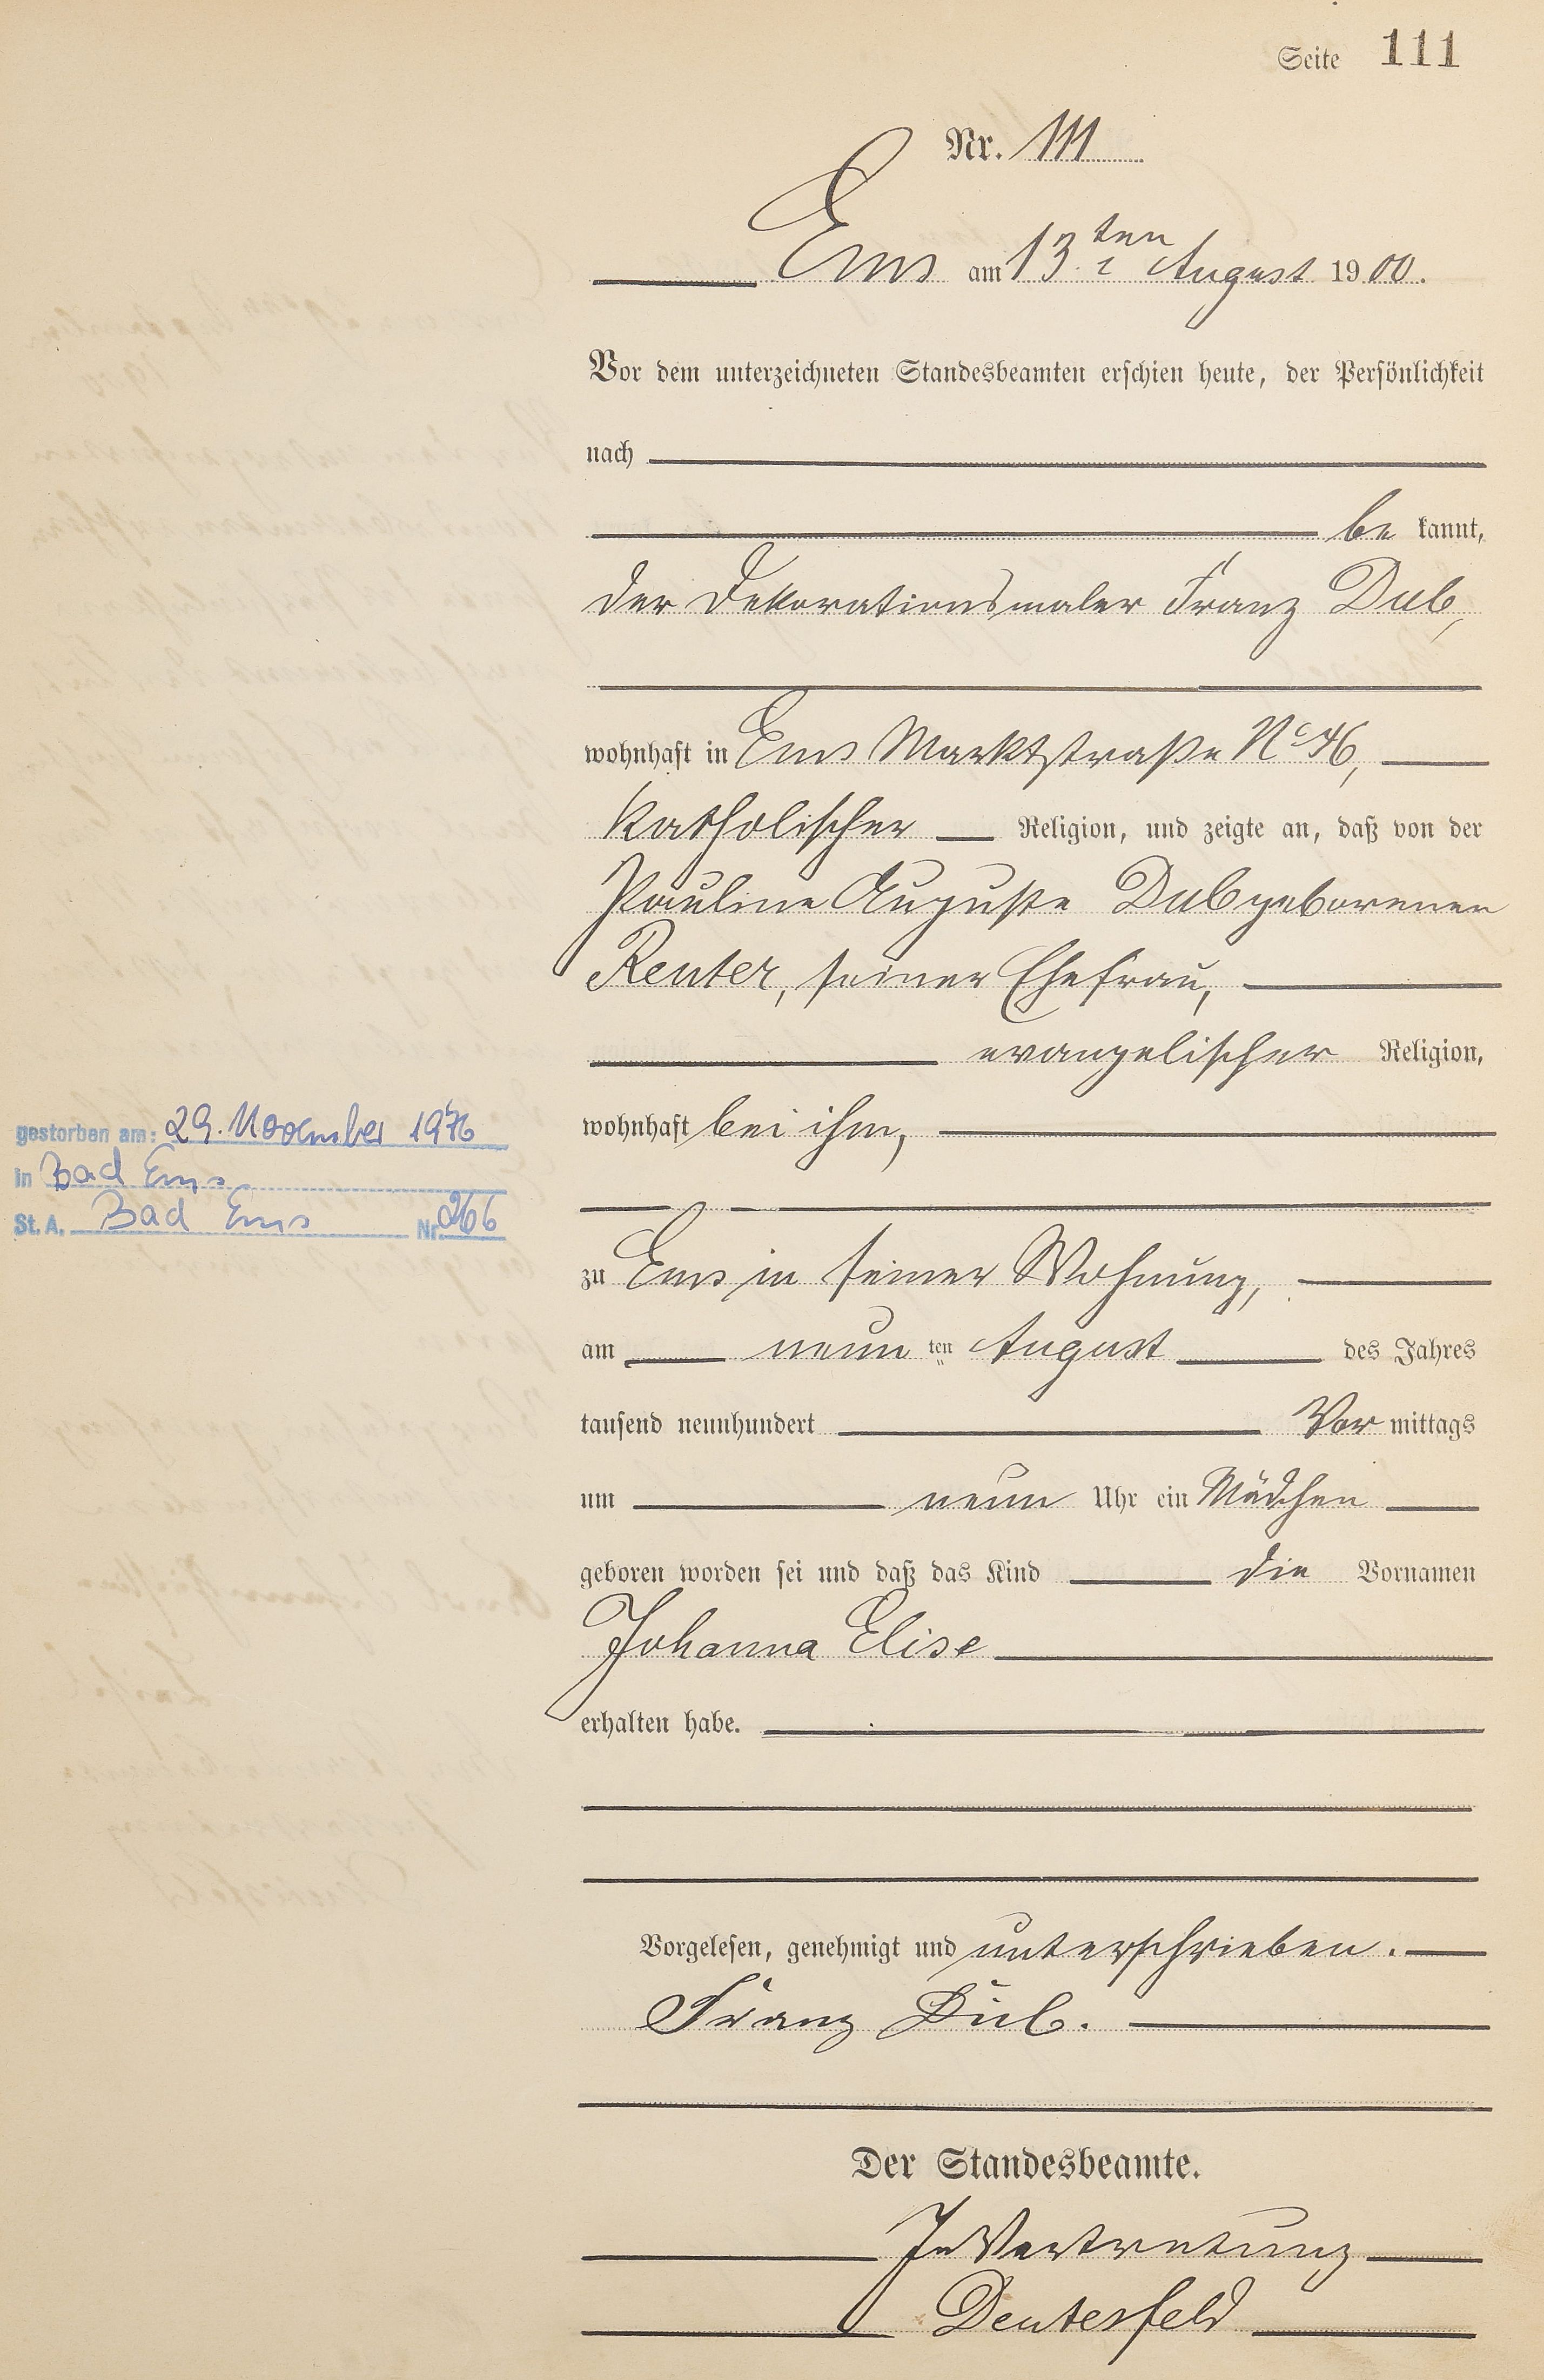 Seite 111
Nr. 111
Ems am 13ten August 1900.
Vor dem unterzeichneten Standesbeamten erschien heute, der Persönlichkeit
nach
be kannt,
der Dekorationsmaler Franz Dub,
wohnhaft in Ems Marktstraße No 46,
katholischer Religion, und zeigte an, daß von der
Pauline Auguste Dub geborenen
Reuter, seiner Ehefrau,
evangelischer Religion,
wohnhaft bei ihm,
gestorben am: 29. November 1976
in Bad Ems
St. A. Bad Ems Nr. 266
zu Ems in seiner Wohnung,
am neun ten August des Jahres
tausend neunhundert Vor mittags
um neun Uhr ein Mädchen
geboren worden sei und daß das Kind die Vornamen
Johanna Elise
erhalten habe.
Vorgelesen, genehmigt und unterschrieben.
Franz Dub.
Der Standesbeamte.
In Vertretung
Deutesfeld